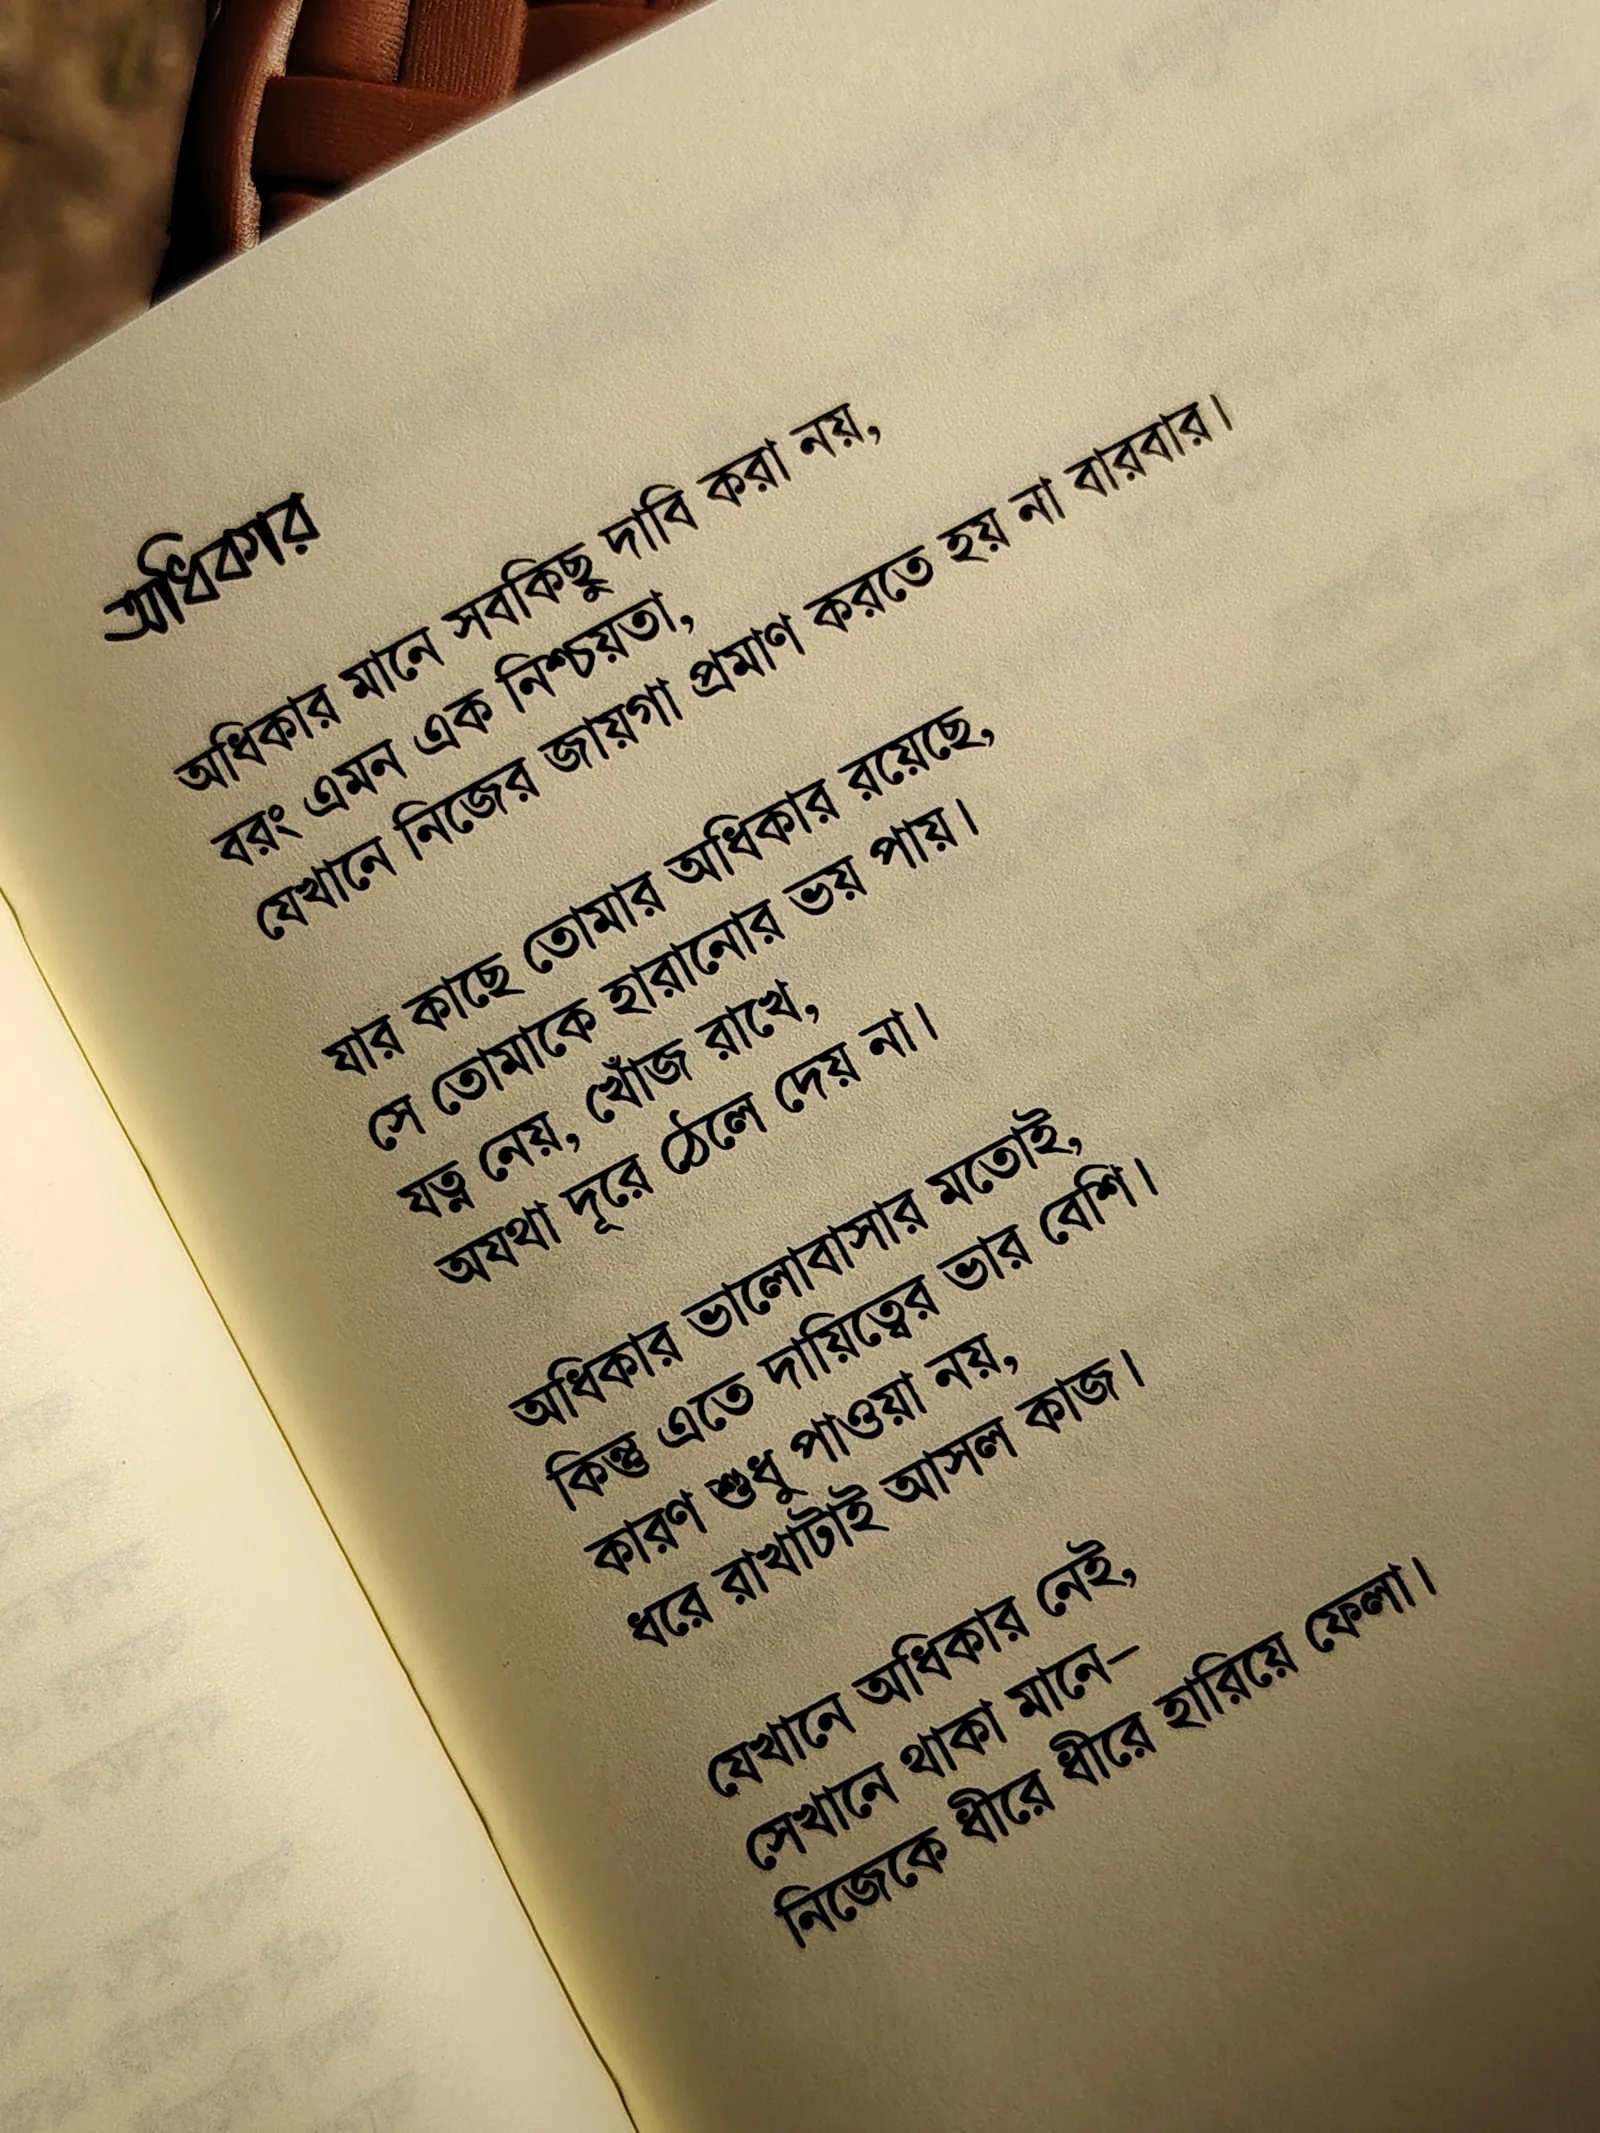 অধিকার
অধিকার মানে সবকিছু দাবি করা নয়,
বরং এমন এক নিশ্চয়তা,
যেখানে নিজের জায়গা প্রমাণ করতে হয় না বারবার।
যার কাছে তোমার অধিকার রয়েছে,
সে তোমাকে হারানোর ভয় পায়।
যত্ন নেয়, খোঁজ রাখে,
অযথা দূরে ঠেলে দেয় না।
অধিকার ভালোবাসার মতোই,
কিন্তু এতে দায়িত্বের ভার বেশি।
কারণ শুধু পাওয়া নয়,
ধরে রাখাটাই আসল কাজ।
যেখানে অধিকার নেই,
সেখানে থাকা মানে–
নিজেকে ধীরে ধীরে হারিয়ে ফেলা।